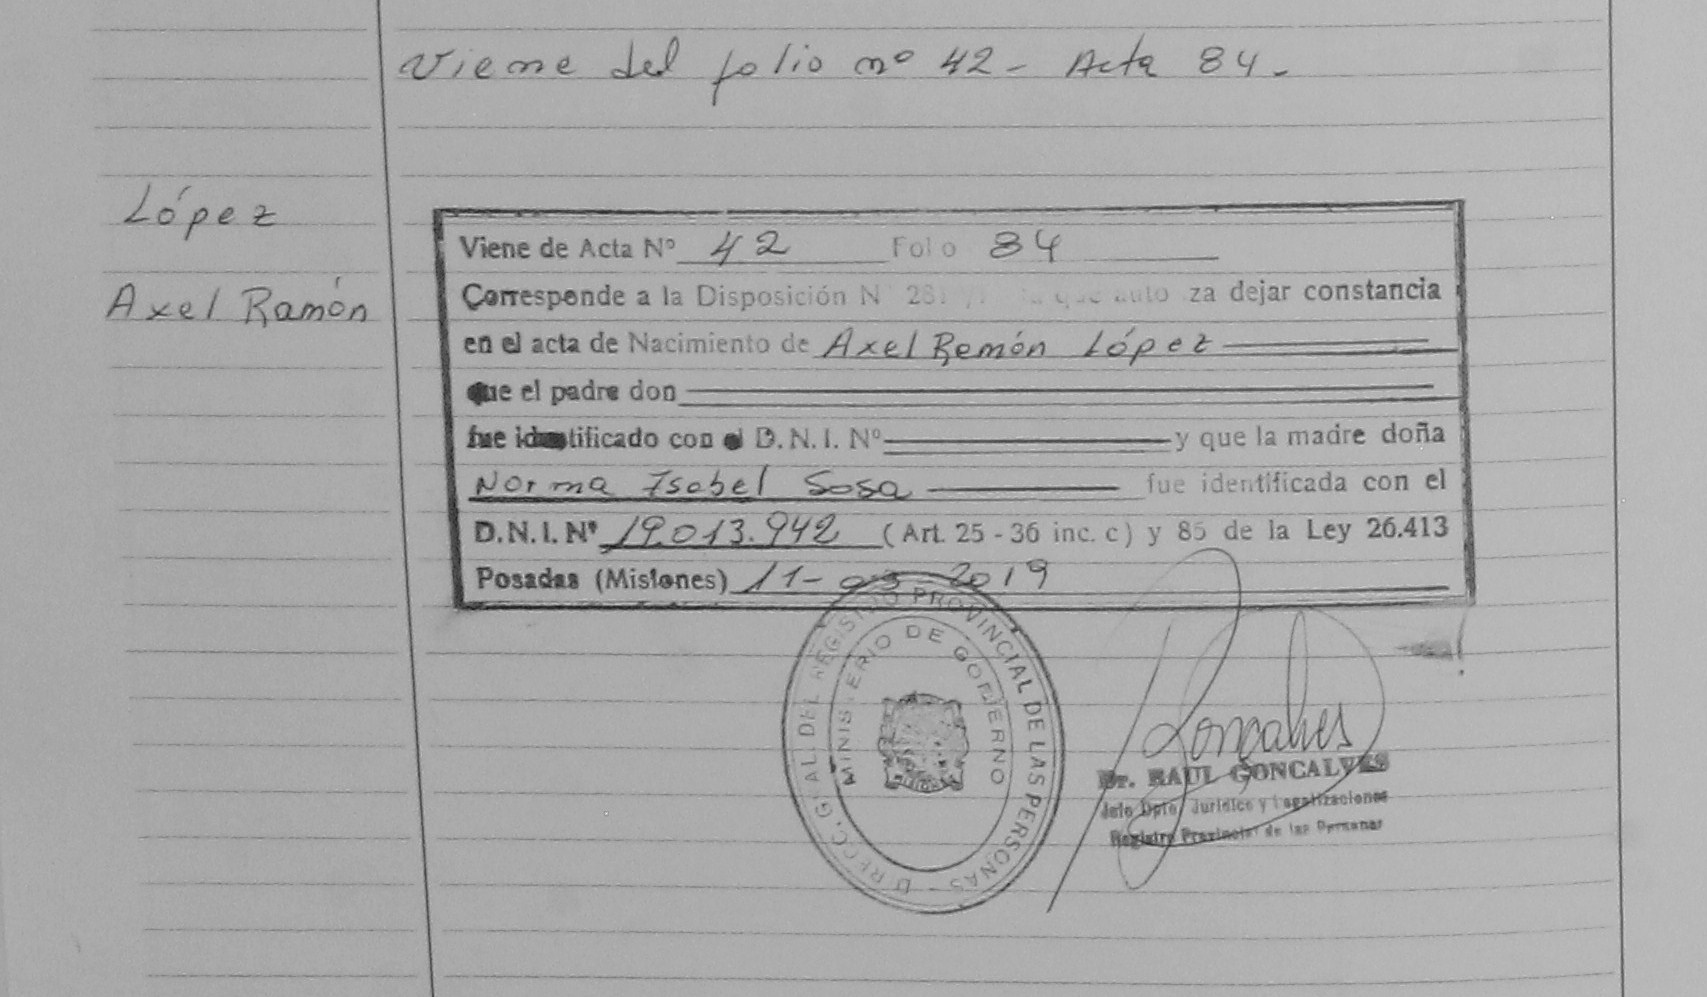 Viene del folio nº 42 - Acta 84.
López
Axel Ramón
Viene de Acta Nº 42 Folio 84
Corresponde a la Disposición N 281 la que auto za dejar constancia
en el acta de Nacimiento de Axel Remón López
que el padre don
fue identificado con el D.N.I. Nº y que la madre doña
Norma Isabel Sosa fue identificada con el
D.N.I. Nº 19.013.942 (Art. 25 - 36 inc. c) y 85 de la Ley 26.413
Posadas (Misiones) 11-03-2019
DIRECC. GRAL. DEL REGISTRO PROVINCIAL DE LAS PERSONAS
MINISTERIO DE GOBIERNO
Goncalves
Dr. RAUL GONCALVES
Jefe Dpto. Jurídico y Legalizaciones
Registro Provincial de las Personas